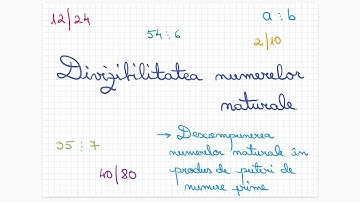 12/24
54 ⋮ 6
a ⋮ b
2/10
Divizibilitatea numerelor
naturale
35 ⋮ 7
40/80
→ Descompunerea
numerelor naturale în
produs de puteri de
numere prime